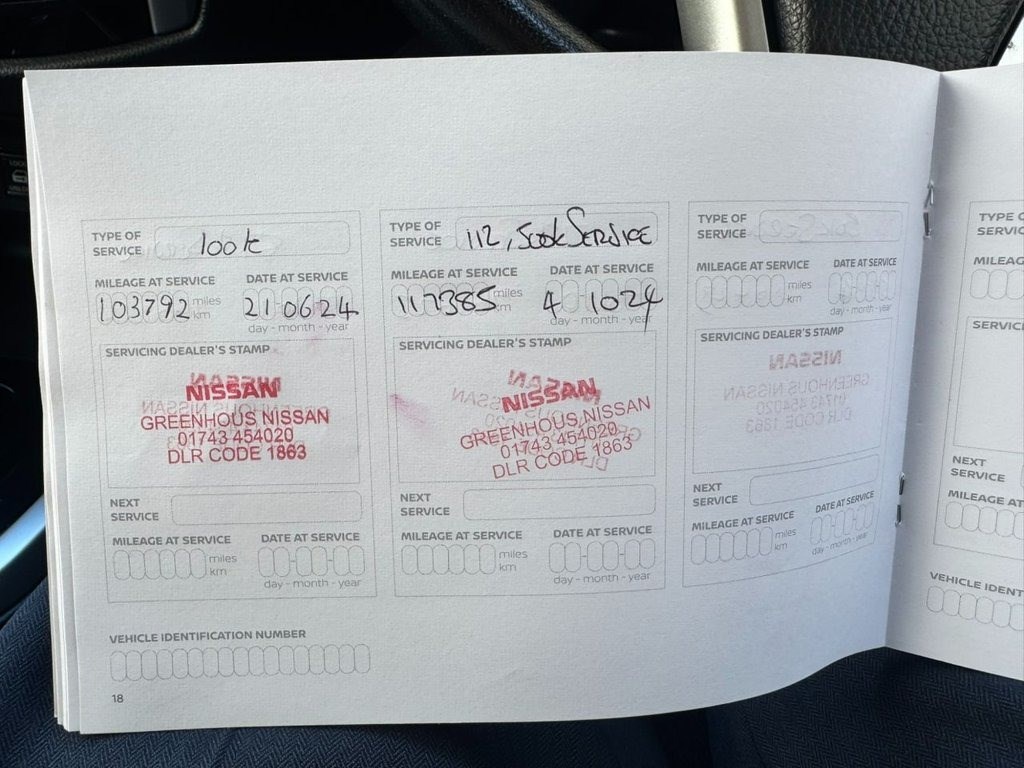 TYPE OF SERVICE 100k
MILEAGE AT SERVICE DATE AT SERVICE
103792 miles km 21 06 24
day - month - year
SERVICING DEALER'S STAMP
NISSAN
GREENHOUS NISSAN
01743 454020
DLR CODE 1863
NEXT SERVICE
MILEAGE AT SERVICE DATE AT SERVICE
miles km
day - month - year
TYPE OF SERVICE 112,500k SERVICE
MILEAGE AT SERVICE DATE AT SERVICE
117385 miles km 4 10 24
day - month - year
SERVICING DEALER'S STAMP
NISSAN
GREENHOUS NISSAN
01743 454020
DLR CODE 1863
NEXT SERVICE
MILEAGE AT SERVICE DATE AT SERVICE
miles km
day - month - year
TYPE OF SERVICE
MILEAGE AT SERVICE DATE AT SERVICE
miles km
day - month - year
SERVICING DEALER'S STAMP
NISSAN
GREENHOUS NISSAN
01743 454020
DLR CODE 1863
NEXT SERVICE
MILEAGE AT SERVICE DATE AT SERVICE
miles km
day - month - year
VEHICLE IDENTIFICATION NUMBER
18
TYPE O
SERVIC
MILEAG
SERVICI
NEXT
SERVICE
MILEAGE AT
VEHICLE IDENT